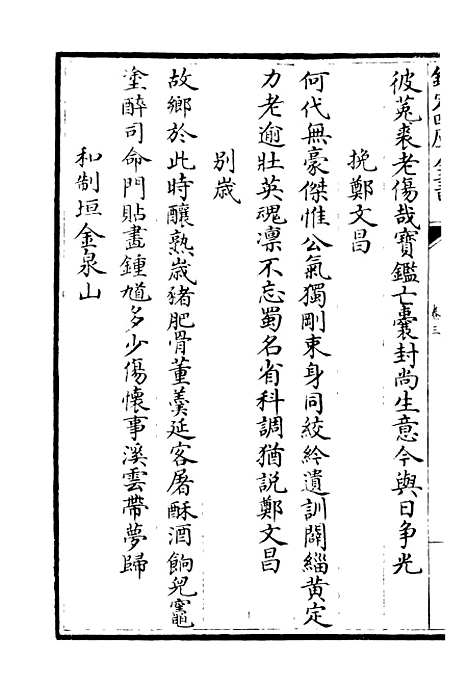 欽定四庫全書
卷三
彼菟裘老傷哉寶鑑亡囊封尚生意今與日争光
挽鄭文昌
何代無豪傑惟公氣獨剛束身同絞紟遺訓闢緇黄定
力老逾壯英魂凛不忘蜀名省科調猶説鄭文昌
别歳
故鄉於此時釀熟歳猪肥骨董羮延客屠酥酒餉兒竈
塗醉司命門貼畫鍾馗多少傷懷事溪雲帶夢歸
和制垣金泉山